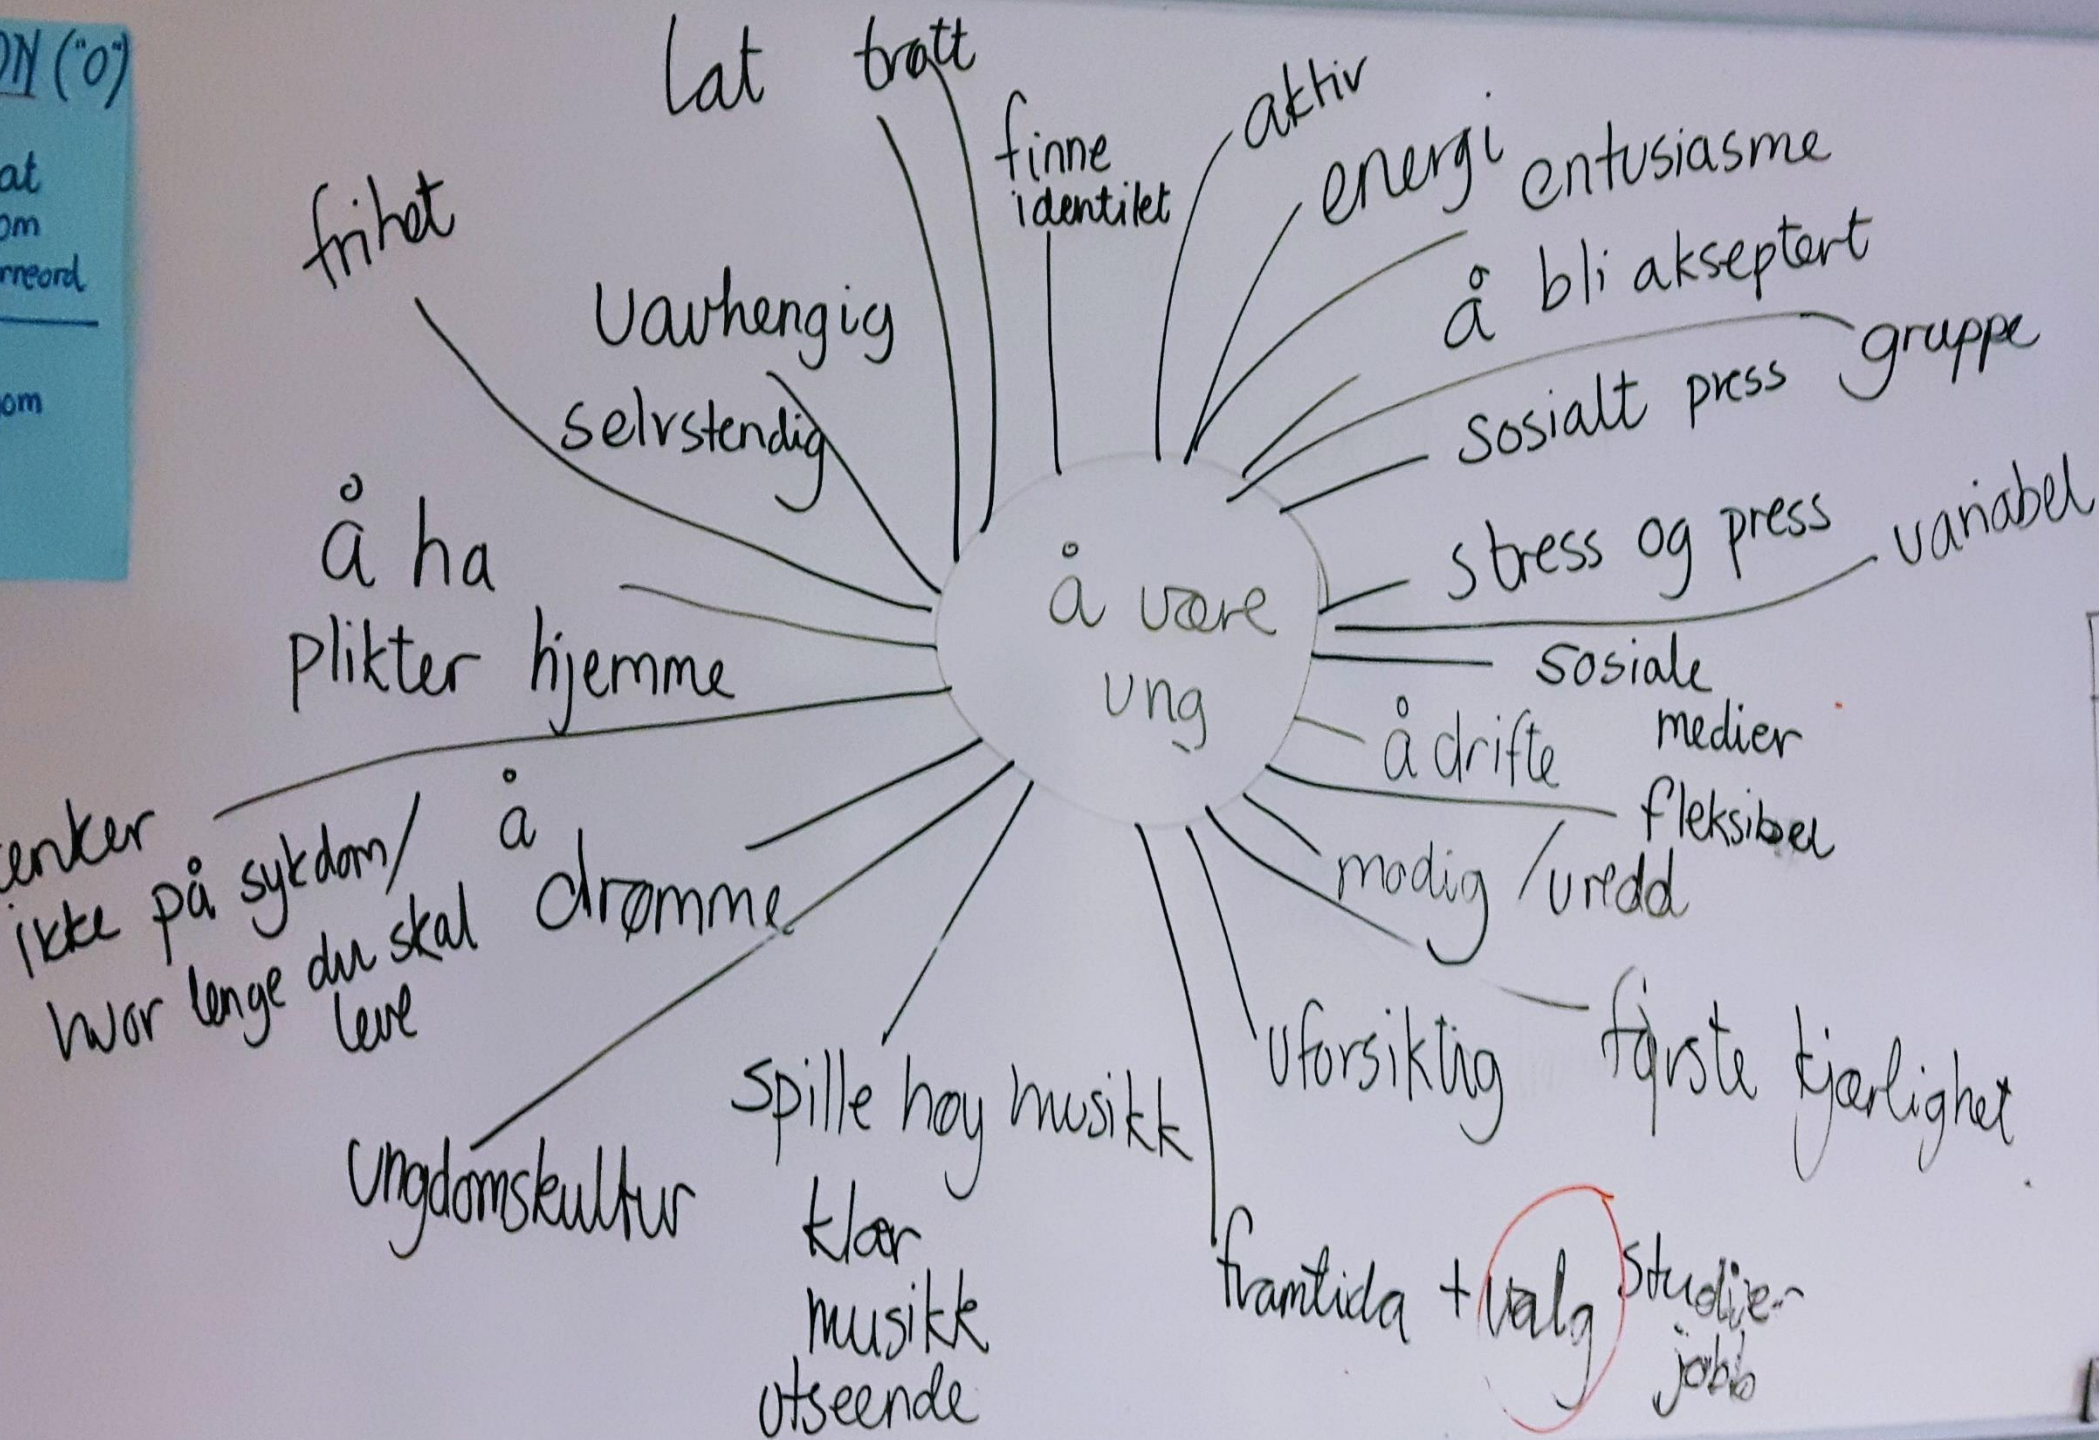 ("0")
at
om
rneord
om
lat
trøtt
finne
identitet
aktiv
energi
entusiasme
å bli akseptert
gruppe
sosialt press
stress og press
variabel
sosiale
medier
å drifte
fleksibel
modig / uredd
første kjærlighet
uforsiktig
framtida + valg
studier
jobb
spille høy musikk
klær
musikk
utseende
ungdomskultur
å
drømme
enker
ikke på sykdom/
hvor lenge du skal
leve
å ha
plikter hjemme
frihet
Uavhengig
selvstendig
å være
ung